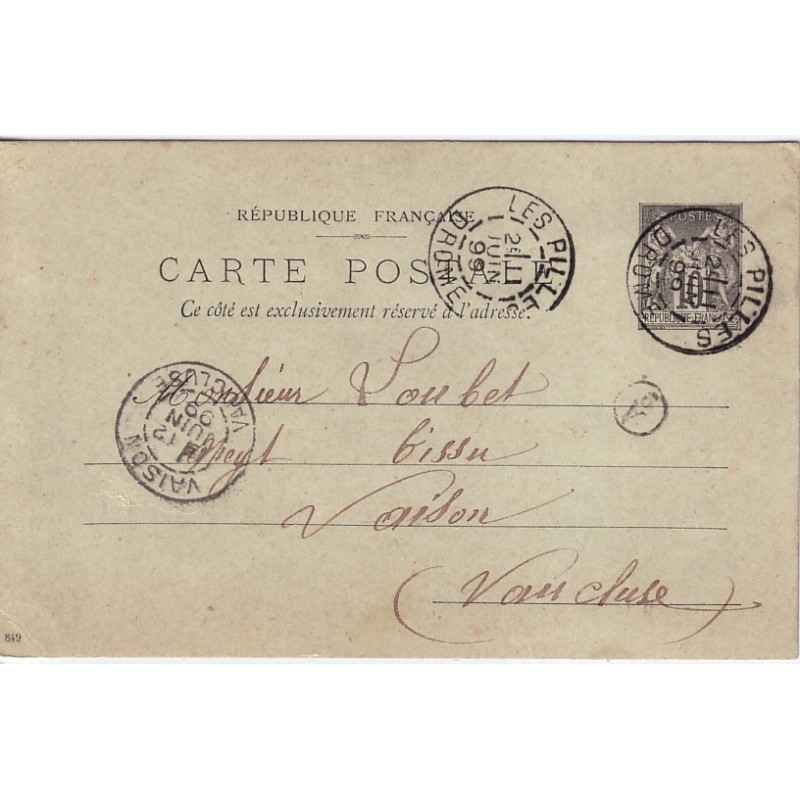 RÉPUBLIQUE FRANÇAISE
CARTE POSTALE
Ce côté est exclusivement réservé à l'adresse.
LES PILLES
2E
11
JUIN
99
DROME
POSTE
10
RÉPUBLIQUE FRANÇAISE
LES PILLES
2E
11
JUIN
99
DROME
VAISON
12
JUIN
99
VAUCLUSE
A
Monsieur Loubet
Negt tissu
Vaison
(Vaucluse)
849